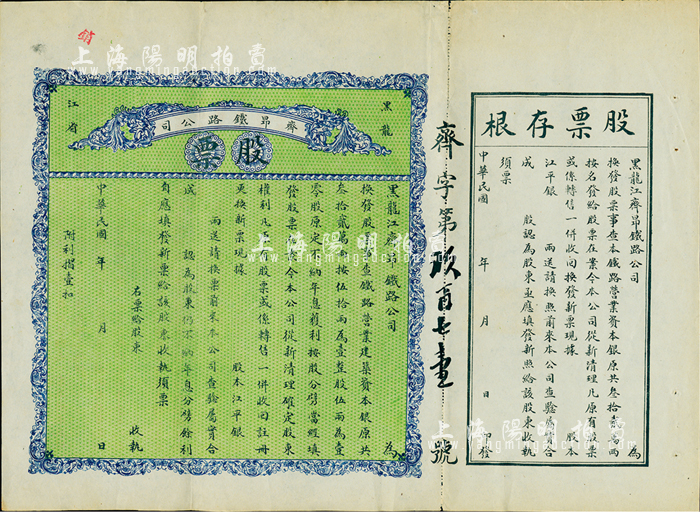 股票存根
黑龍江齊昂鐵路公司 為
換發股票事查本鐵路營業資本銀原共叁拾貳萬兩
按名發給股票在業今本公司從新清理凡原有股票
或係轉售一併收回換發新票現據 股本
江平銀 兩送請換照前來本公司查驗屬實合
成 股認為股東亟應填發新照給該股東收執
須票
中華民國 年 月 日 發
齊字第 百七 號
黑龍
江省
齊昂鐵路公司
股票
黑龍江齊昂鐵路公司 為
換發股 查鐵路營業建築資本銀原共
叁拾貳萬兩按伍拾兩為壹整股伍兩為壹
零股原定 納年息獲利按股分劈當經填
發股票在 今本公司從新清理確定股東
權利凡 股票或係轉售一併收回註冊
更換新票現據 股本江平銀
兩送請換票前來本公司查驗屬實合
成 認為股東仍不納年息分劈餘利
自應填發新票給該股東收執須票
右票給股東 收執
中華民國 年 月 日
附利摺壹扣
銷
上海陽明拍賣
yangmingauction.com